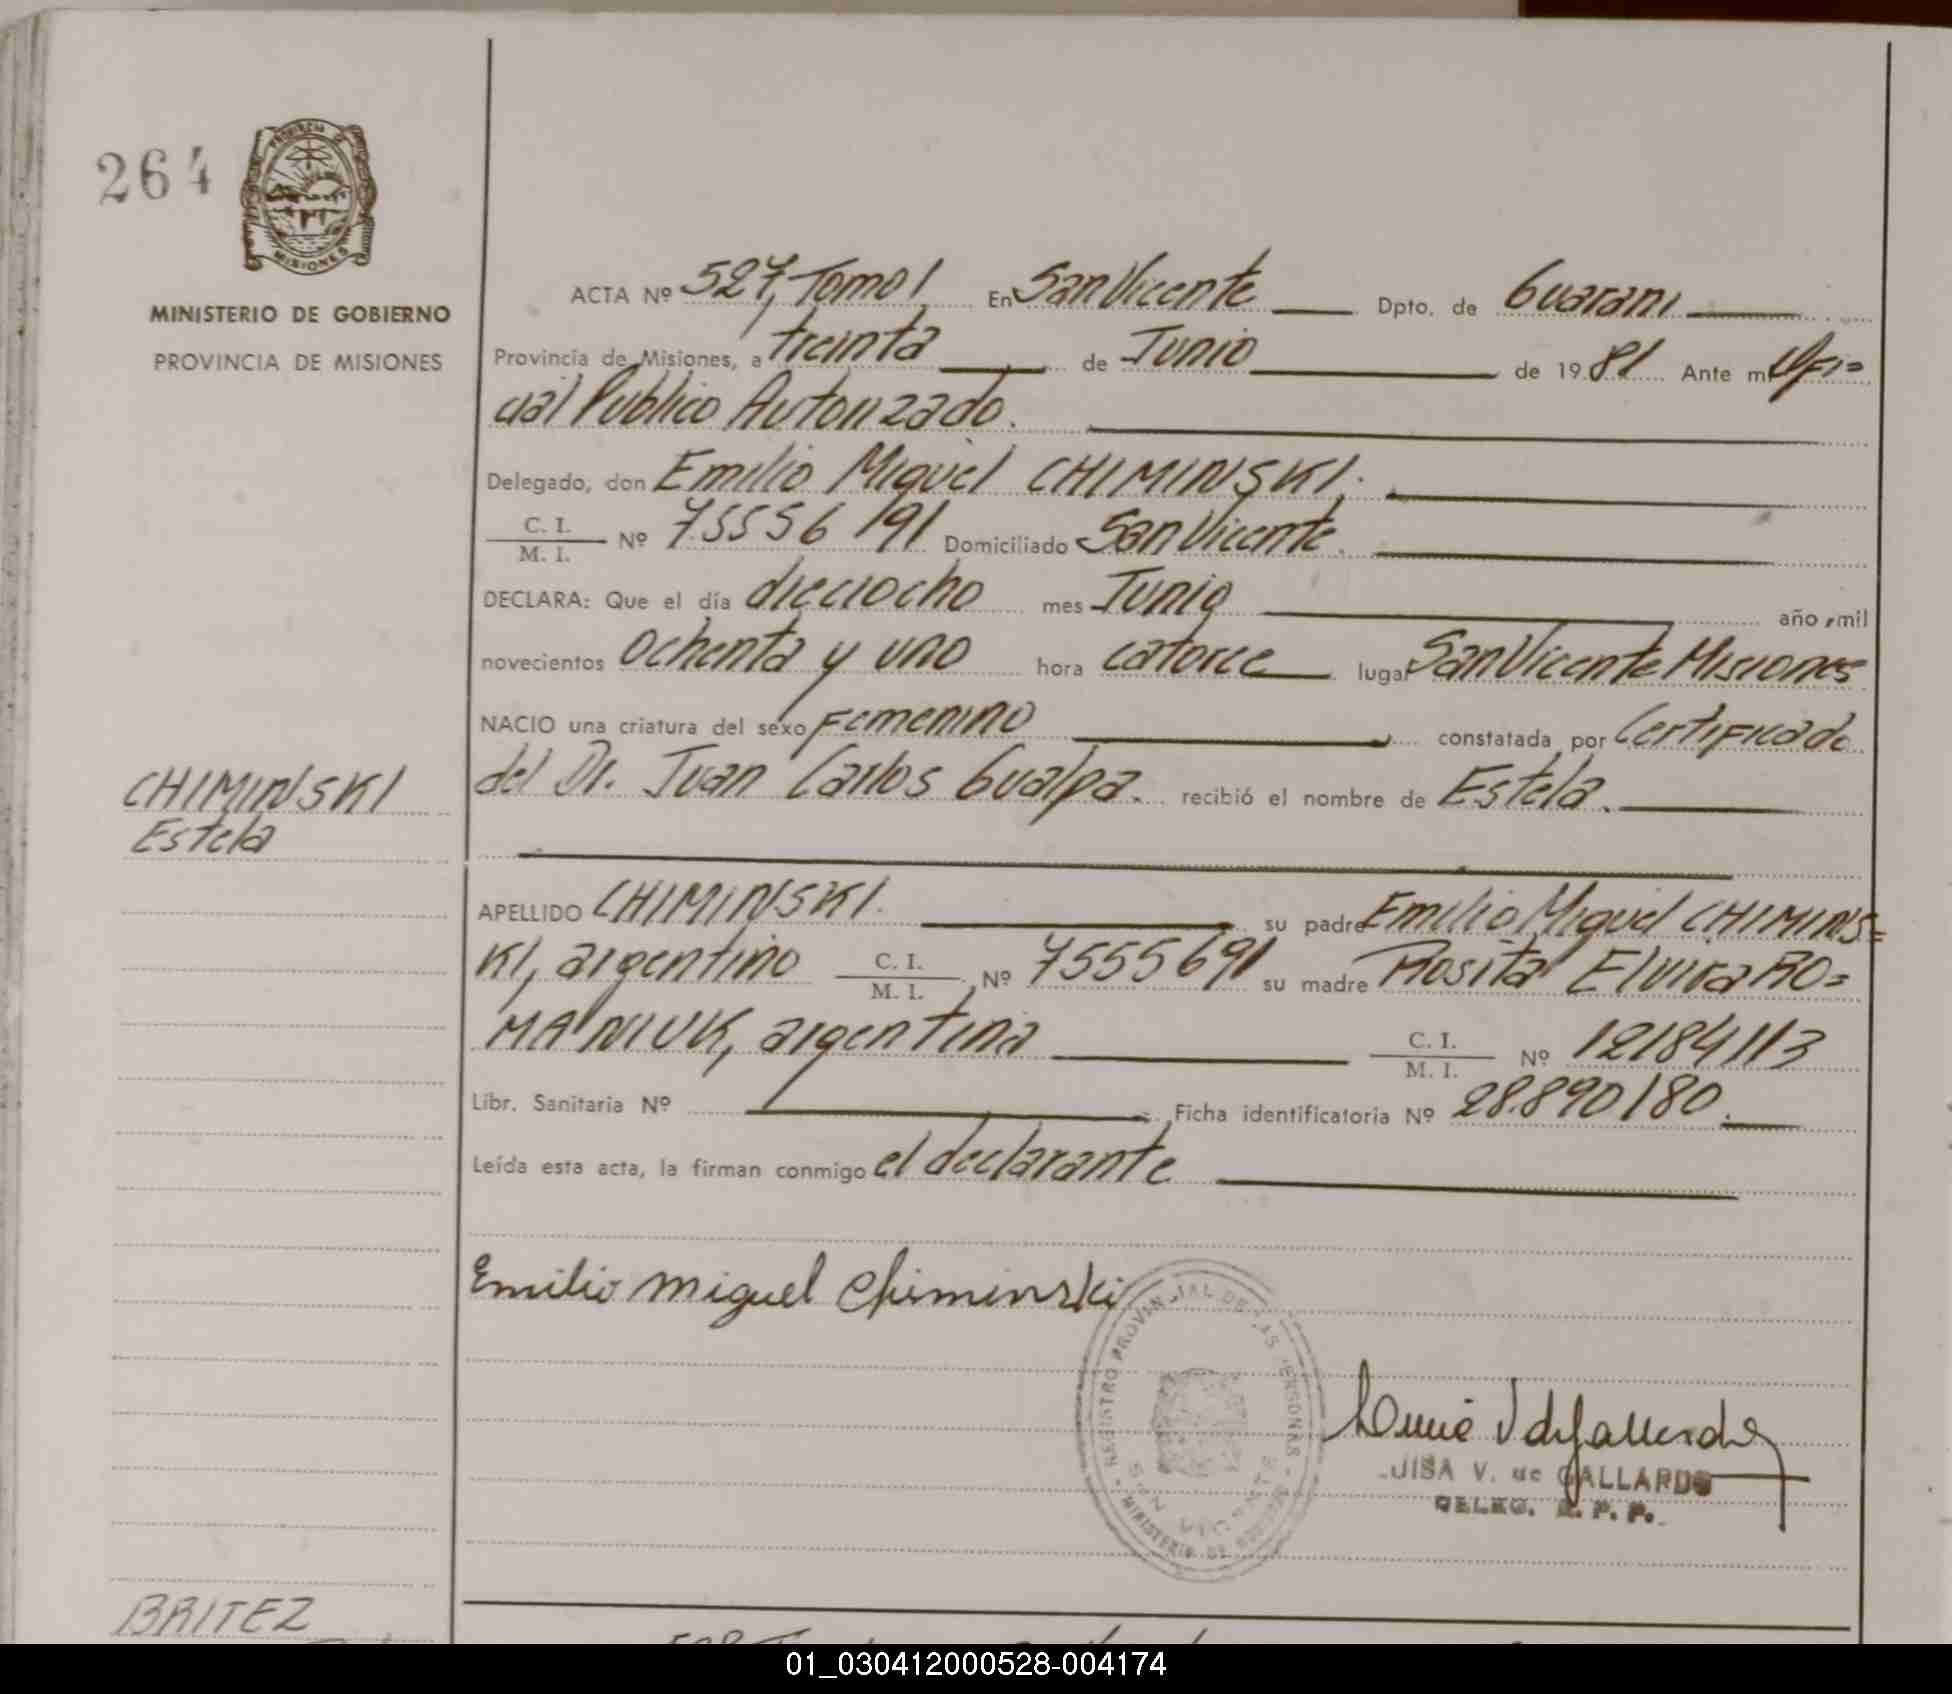 264
PROVINCIA DE
MISIONES
MINISTERIO DE GOBIERNO
PROVINCIA DE MISIONES
ACTA Nº 527, Tomo I En San Vicente Dpto. de Guarani
Provincia de Misiones, a treinta de Junio de 1981 Ante mi Ofi=
cial Publico Autorizado.
Delegado, don Emilio Miguel CHIMINSKI.
C. I.
M. I. Nº 7555691 Domiciliado San Vicente.
DECLARA: Que el día dieciocho mes Junio año mil
novecientos ochenta y uno hora catorce lugar San Vicente Misiones
NACIO una criatura del sexo Femenino constatada por Certificado
CHIMINSKI
Estela
del Dr. Juan Carlos Gualpa. recibió el nombre de Estela.
APELLIDO CHIMINSKI. su padre Emilio Miguel CHIMINS=
KI, argentino C. I.
M. I. Nº 7555691 su madre Rosita Elvira RO=
MANIUK, argentina C. I.
M. I. Nº 12184113
Libr. Sanitaria Nº Ficha identificatoria Nº 28.890180.
Leída esta acta, la firman conmigo el declarante
Emilio Miguel Chiminski
REGISTRO PROVINCIAL DE LAS PERSONAS
SAN VICENTE
MINISTERIO DE GOBIERNO
LUISA V. de GALLARDO
DELEG. R. P. P.
BRITEZ
01_030412000528-004174